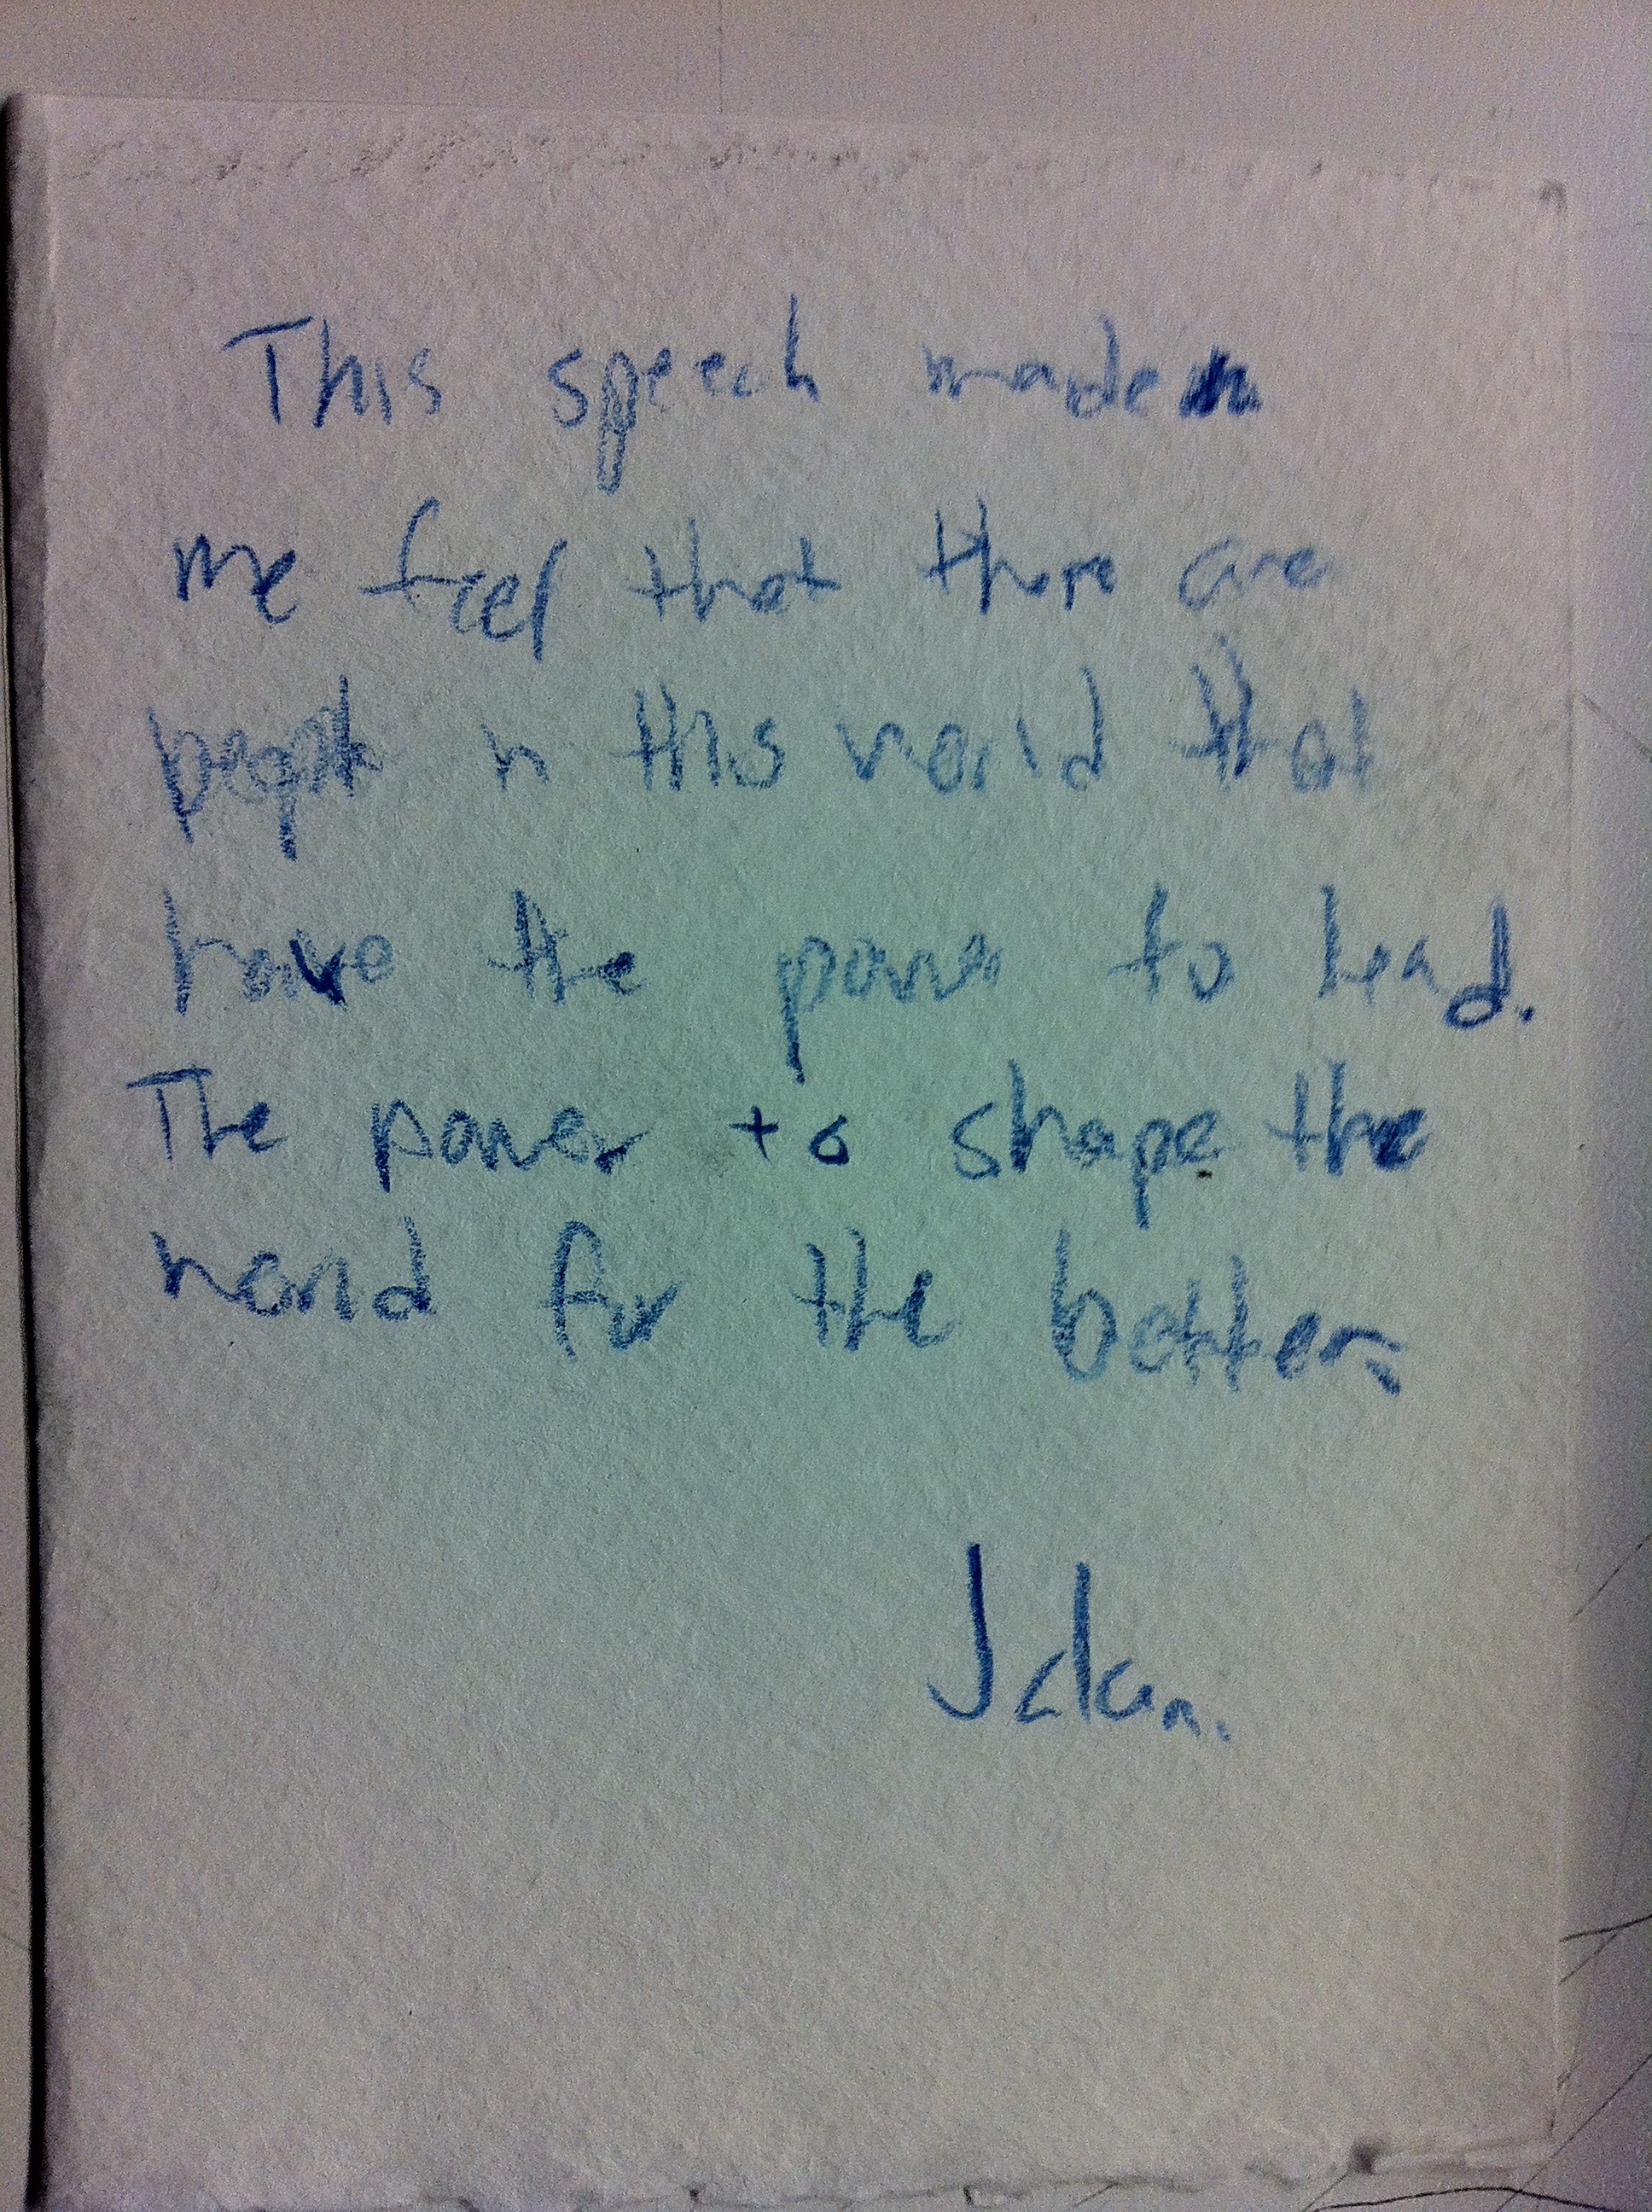 This speech made
me feel that there are
people in this world that
have the power to lead.
The power to shape the
world for the better.